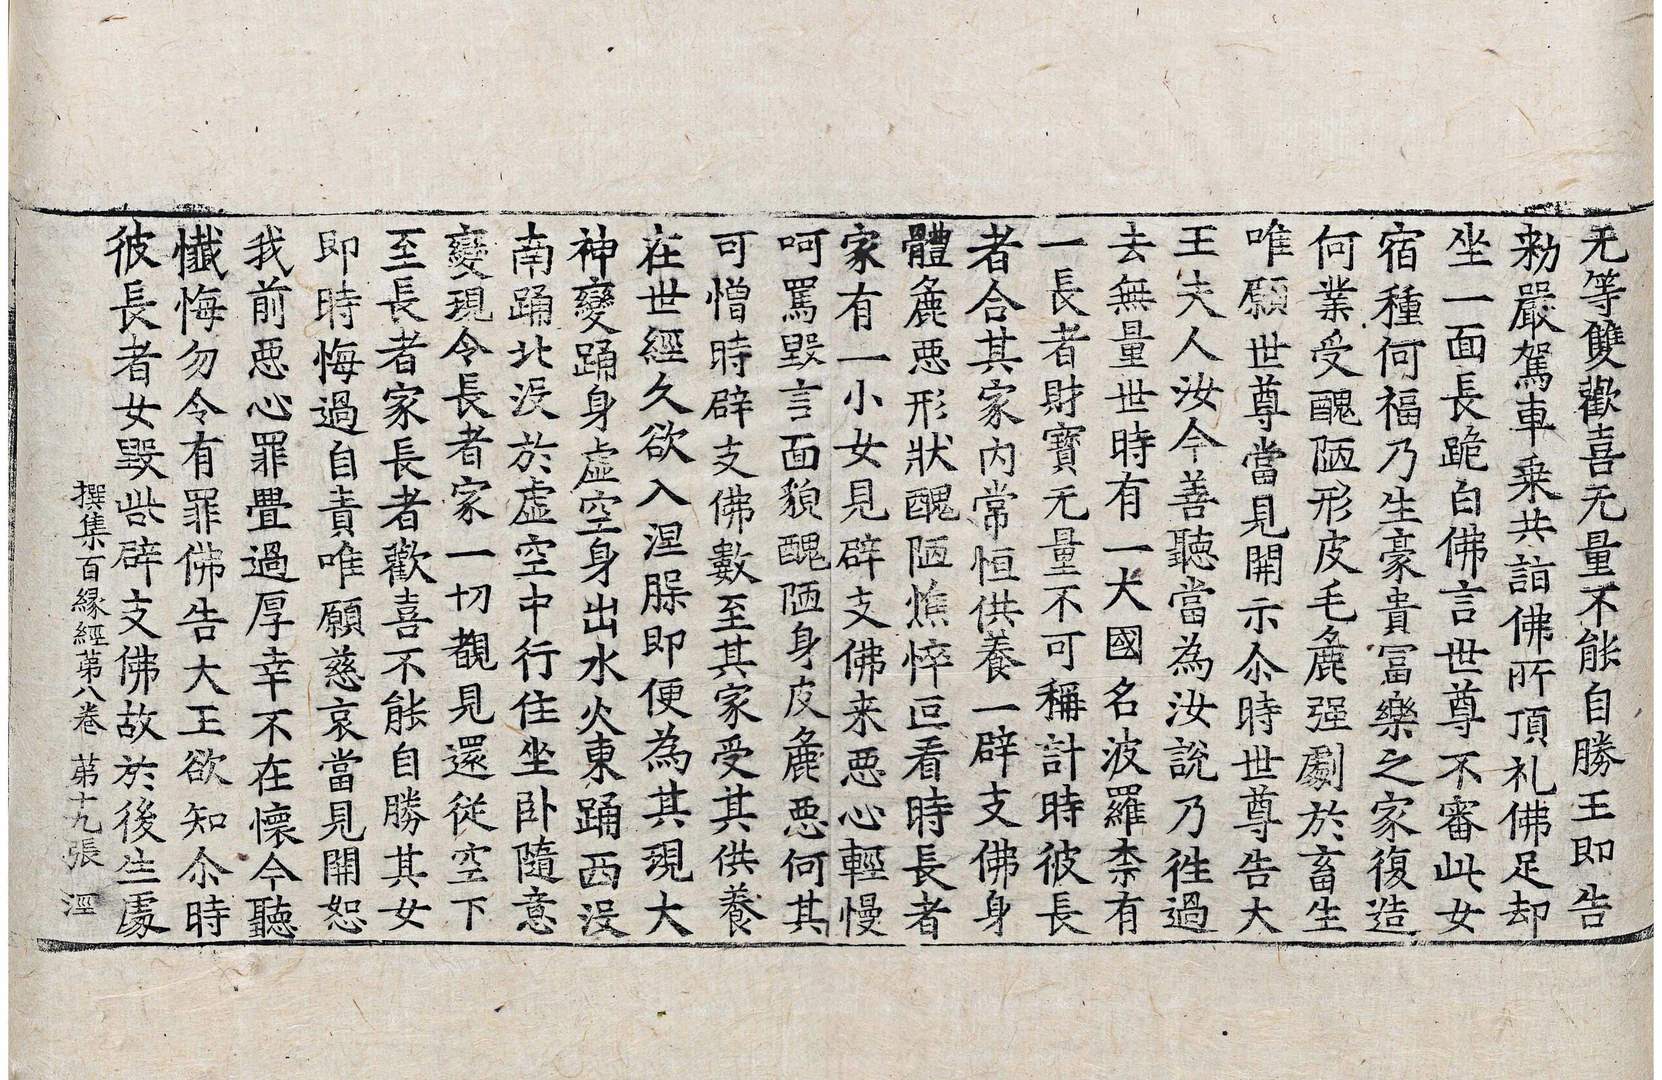 无等雙歡喜无量不能自勝王即告
勑嚴駕車乗共詣佛所頂礼佛足却
坐一面長跪白佛言世尊不審此女
宿種何福乃生豪貴冨樂之家復造
何業受醜陋形皮毛麁强劇於畜生
唯願世尊當見開示尒時世尊告大
王夫人汝今善聽當為汝說乃徃過
去無量世時有一大國名波羅柰有
一長者財寶无量不可稱計時彼長
者合其家內常恒供養一辟支佛身
體麁悪形狀醜陋燋悴叵看時長者
家有一小女見辟支佛来悪心輕慢
呵罵毀言面貌醜陋身皮麁悪何其
可憎時辟支佛數至其家受其供養
在世經久欲入涅槃即便為其現大
神變踊身虛空身出水火東踊西没
南踊北没於虛空中行住坐卧隨意
變現令長者家一切覩見還從空下
至長者家長者歡喜不能自勝其女
即時悔過自責唯願慈哀當見開恕
我前悪心罪舋過厚幸不在懷今聽
懺悔勿令有罪佛告大王欲知尒時
彼長者女毀呰辟支佛故於後生處
撰集百緣經苐八卷 苐十九張 涇